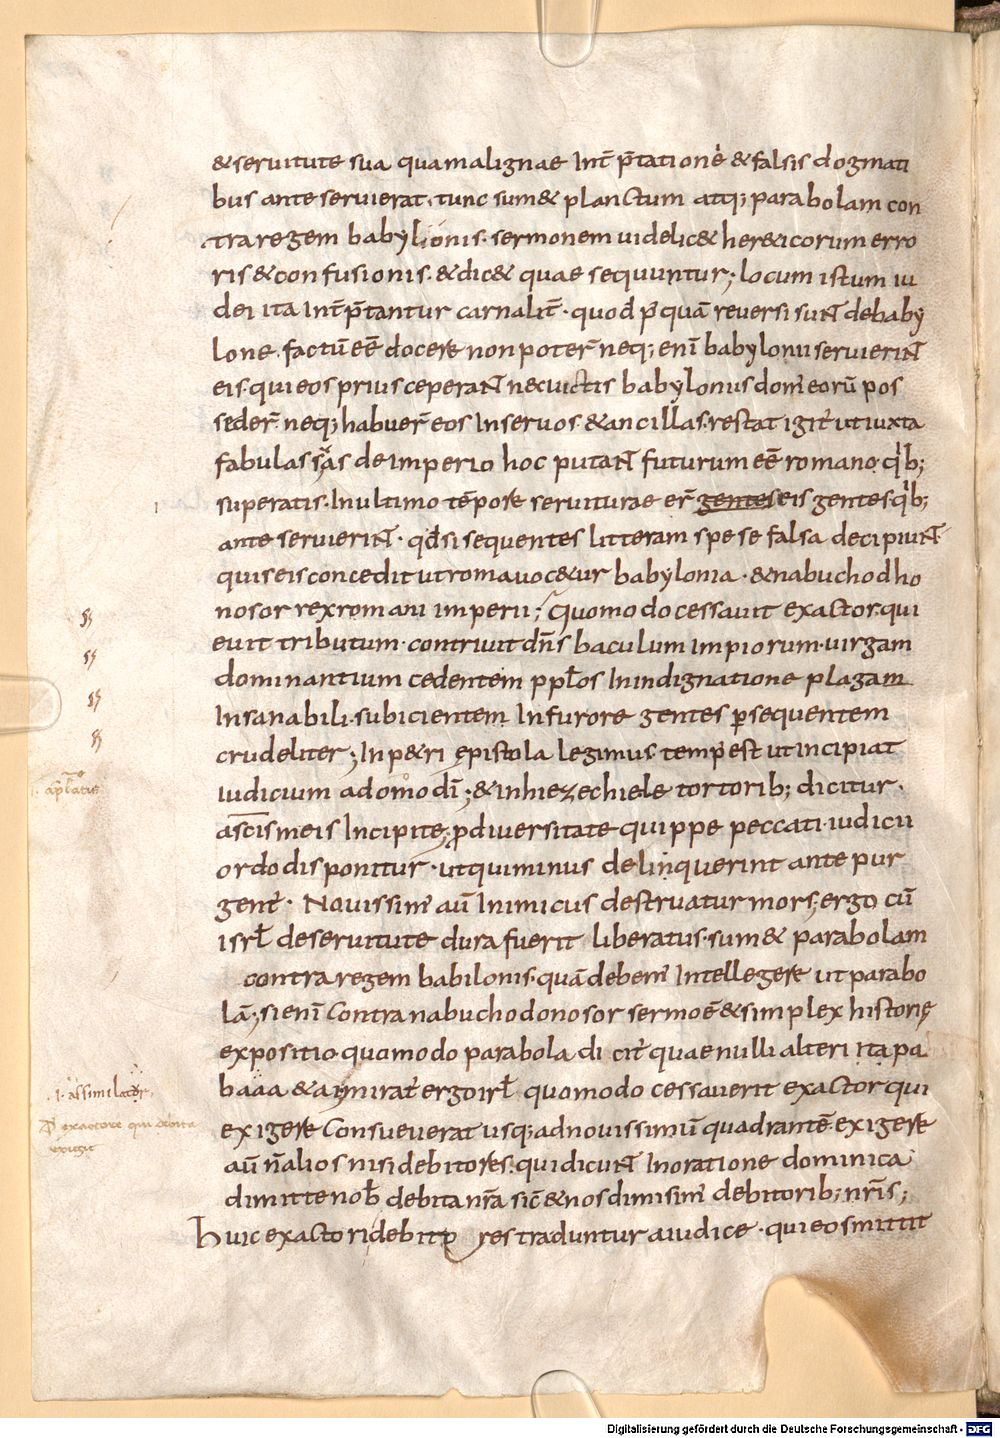 & seruitute sua qua malignae Int̄ p̄tationė & falsis dogmati
bus ante seruierat. tunc sum& planctum atq; parabolam con
tra regem babylionis. sermonem uidelic& her&icorum erro
ris & confusionis. & dic& quae sequuntur; locum istum iu
dei ita Int̄p̄tantur carnalit̄. quod p̄quā reuersi sunt de baby
lone. factū eē docere non poter̄ neq; eni babylonii seruierint
eis. qui eos prius ceperant nec uictis babylonus dom̄ eorū pos
seder̄ neq; habuer̄ eos In seruos & ancillas. restat igit̄ ut iuxta
fabulas suas de imperio hoc putant futurum eē romano. q'b;
superatis. In ultimo tēpore seruiturae er̄ gentes eis gentes q'b;
ante seruierint. qd si sequentes litteram spe se falsa decipiunt
quis eis concedit ut roma uoc&ur babylonia. & nabuchodho
nosor rex romani imperii; Quomodo cessauit exactor. qui
euit tributum. contriuit dn̄s baculum impiorum. uirgam
dominantium cedentem pplos In indignatione plagam
Insanabili. subicientem In furore gentes p̄sequentem
crudeliter; In p&ri epistola legimus. temp est ut incipiat
iudicium a domo dī; & in hiezechiele tortorib; dicitur.
a sc̄is meis Incipite; p̄ diuersitate quippe peccati. iudicii
ordo disponitur. ut qui minus delinquerint ante pur
gent̄. Nouissim̄ aū Inimicus destruatur mors; ergo cū
isrł de seruitute dura fuerit liberatus. sum& parabolam
contra regem babilonis. quā debem̄ Intellegere ut parabo
lā; si enī contra nabuchodonosor sermo ē & simplex historię
expositio. quomodo parabola dicit̄ quae nulli alteri ita pa
baaa & aymirat̄ ergo isrł quomodo cessauerit exactor qui
exigere consueuerat usq; ad nouissimū quadrantē. exigere
aū n̄ alios nisi debitores. qui dicunt In oratione dominica
dimitte nob̄ debita nr̄a sic̄ & nos dimisim̄ debitorib; nr̄is;
Huic exactori debitores traduntur a iudice. qui eos mittit
.i. assimilatur.
Digitalisierung gefördert durch die Deutsche Forschungsgemeinschaft - DFG